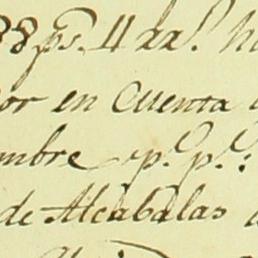 88 p.s 4 rr.s h
or en Cuenta
mbre p.r p.r:
de Alcabalas